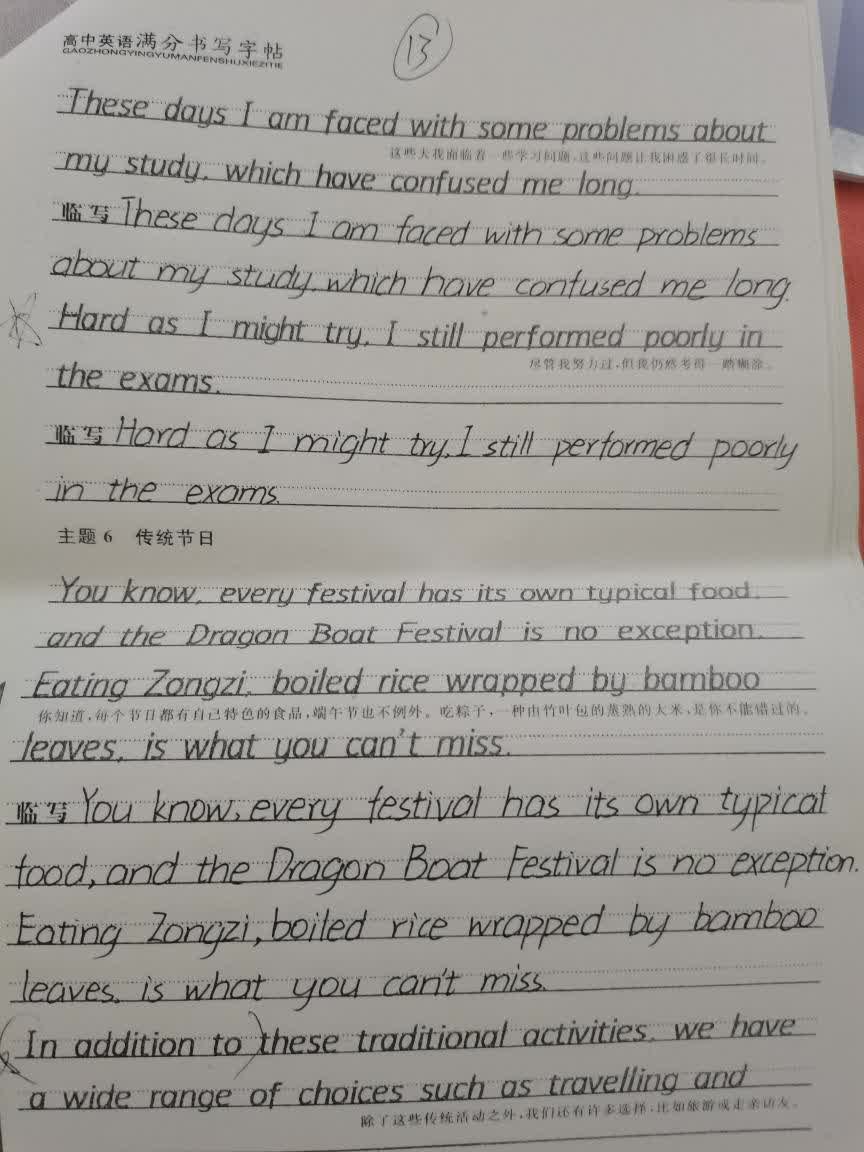 高中英语满分书写字帖
GAOZHONGYINGYUMANFENSHUXIEZITIE
13
These days I am faced with some problems about
这些天我面临着一些学习问题,这些问题让我困惑了很长时间。
my study, which have confused me long.
临写 These days I am faced with some problems
about my study, which have confused me long.
Hard as I might try, I still performed poorly in
尽管我努力过,但我仍然考得一踏糊涂。
the exams.
临写 Hard as I might try, I still performed poorly
in the exams.
主题6 传统节日
You know, every festival has its own typical food,
and the Dragon Boat Festival is no exception.
Eating Zongzi, boiled rice wrapped by bamboo
你知道,每个节日都有自己特色的食品,端午节也不例外。吃粽子,一种由竹叶包的蒸熟的大米,是你不能错过的。
leaves, is what you can't miss.
临写 You know, every festival has its own typical
food, and the Dragon Boat Festival is no exception.
Eating Zongzi, boiled rice wrapped by bamboo
leaves, is what you can't miss.
(In addition to) these traditional activities, we have
a wide range of choices such as travelling and
除了这些传统活动之外,我们还有许多选择,比如旅游或走亲访友。